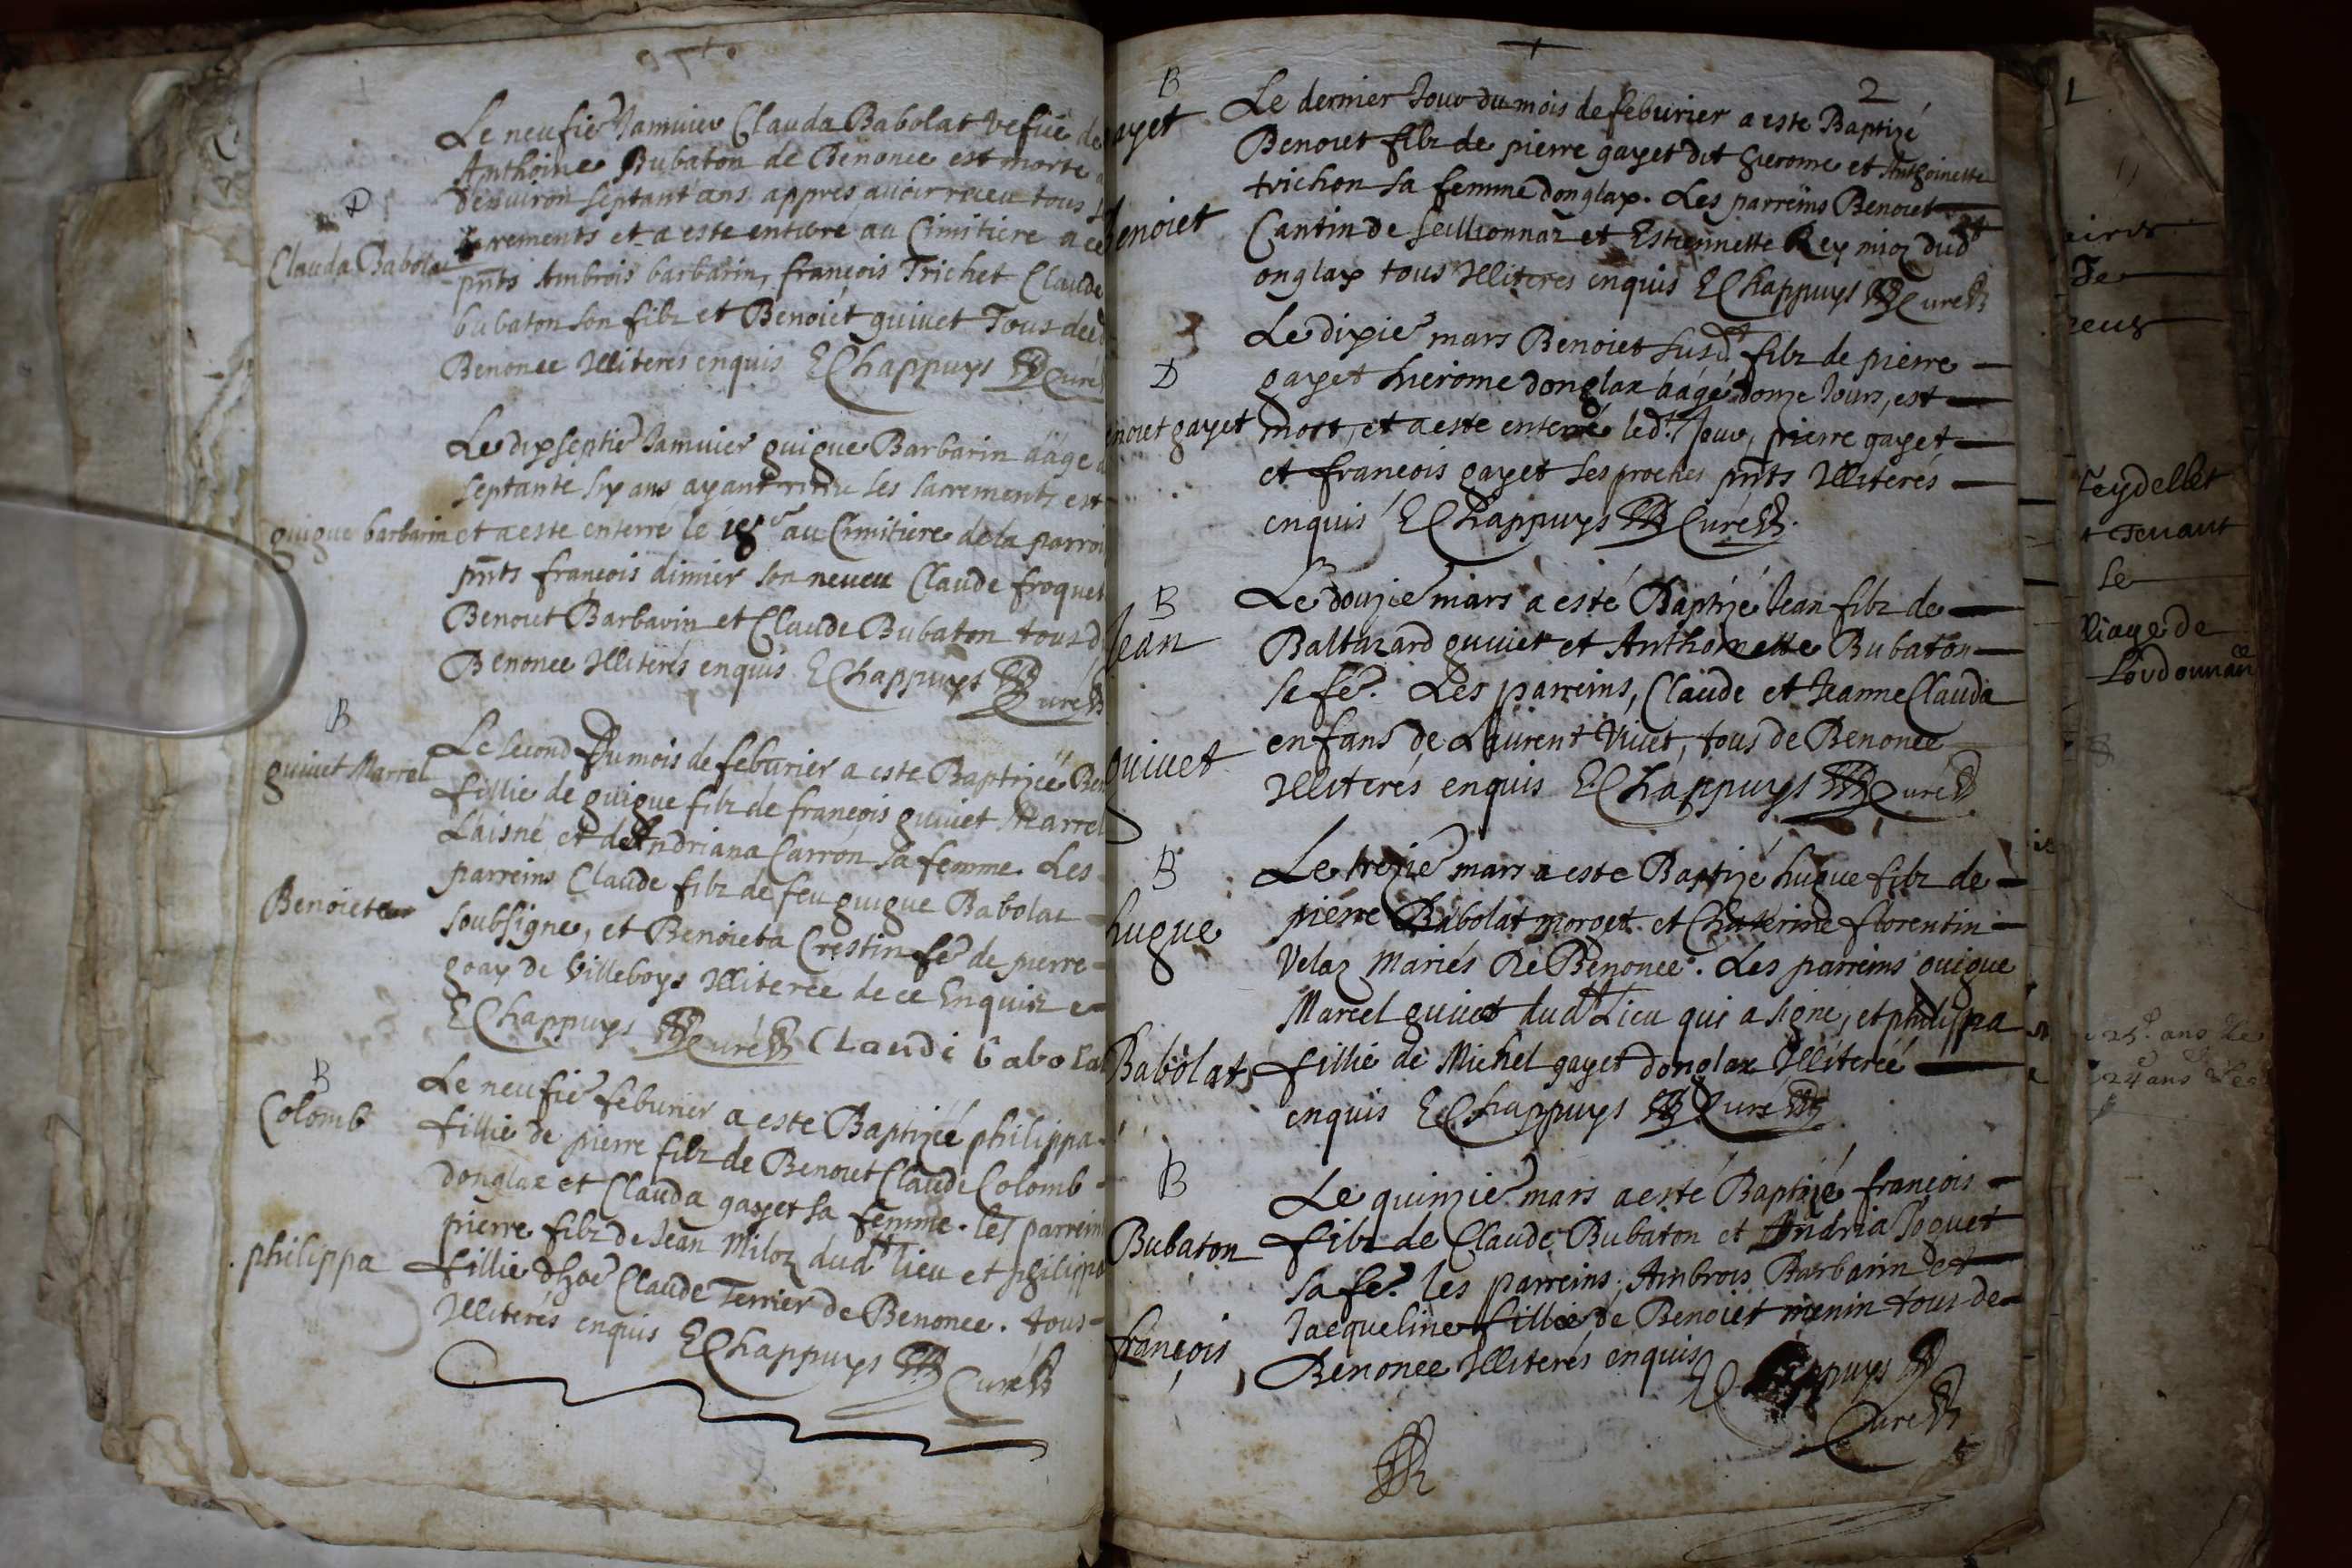 D
Clauda Babolat
Le neufie Januier Clauda Babolat vefue de
Anthoine Bubaton de Benonce est morte
denuiron septant ans appres auoir receu tous
sacrements et a este enterré au Cimitiere
pnts Ambrois barbarin, françois Trichet Claude
bubaton son filz et Benoiet guiuet Tous
Benonce Illiteres enquis EChappuys Curé
guigue barbarin
Le dixseptie Januier guigue Barbarin aàge
septante six ans ayant receu les sacrements est
et a este enterre le 18e au Cimitiere de la
pnts françois dimier son neueu Claude froquet
Benoiet Barbarin et Claude Bubaton tous
Benonce Illiterés enquis EChappuys Curé
B
guiuet Marrel
Benoieta
Le second du mois de feburier a este Baptizeé
fillie de guigue filz de françois guiuet Marrel
Laisné et de Andriana Carron sa femme. Les
parreins Claude filz de feu guigue Babolat
soubsigne, et Benoieta Crestin fe de pierre
goax de Villeboys Illiterée de ce Enquize
EChappuys Curé Claudi babolat
B
Colomb
philippa
Le neufie feburier a este Baptizeé philippa
fillie de pierre filz de Benoiet Claude Colomb
donglax et Clauda gayet sa femme. les parreins
pierre filz de Jean Miloz dudt lieu et philippa
fillie dhoe Claude Terrier de Benonce. tous
Illiterés enquis EChappuys Curé
2
B
gayet
Benoiet
Le dernier Jour du mois de feburier a este Baptizé
Benoiet filz de pierre gayet dit hierome et Anthoinette
trichon sa femme donglax. Les parreins Benoiet
Cantin de seillionnaz et Estiennette Rey mioz dudt
onglax tous Illiteres enquis EChappuys Curé
D
Benoiet gayet
Le dixie mars Benoiet susdt filz de pierre
gayet hierome donglax aàgé donze Jours, est
mort, et a este enterré ledt Jour, pierre gayet
et françois gayet ses proches pnts Illiterés
enquis EChappuys Curé
B
Jean
guiuet
Le douzie mars a esté Baptizé Jean filz de
Baltazard guiuet et Anthoinette Bubaton
sa fe. Les parreins, Claude et Jeanne Clauda
enfans de Laurent Viuet, tous de Benonce
Illiterés enquis EChappuys Curé
B
hugue
Babolat
Le trezie mars a este Baptizé hugue filz de
pierre Babolat morget et Chaterine florentin
Velaz Mariés de Benonce. Les parreins guigue
Marcel guiuet dudt Lieu qui a signé, et philippa
fillie de Michel gayet donglax Illitereé
enquis EChappuys Curé
B
Bubaton
françois
Le quinzie mars a esté Baptizé françois
filz de Claude Bubaton et Andria Joquet
sa fe. les parreins, Ambrois Barbarin et
Jacqueline fillie de Benoiet menin tous de
Benonce Illiterés enquis EChappuys
Curé
Teydellet
Tenant
Le
Riage de
25 ans
24 ans